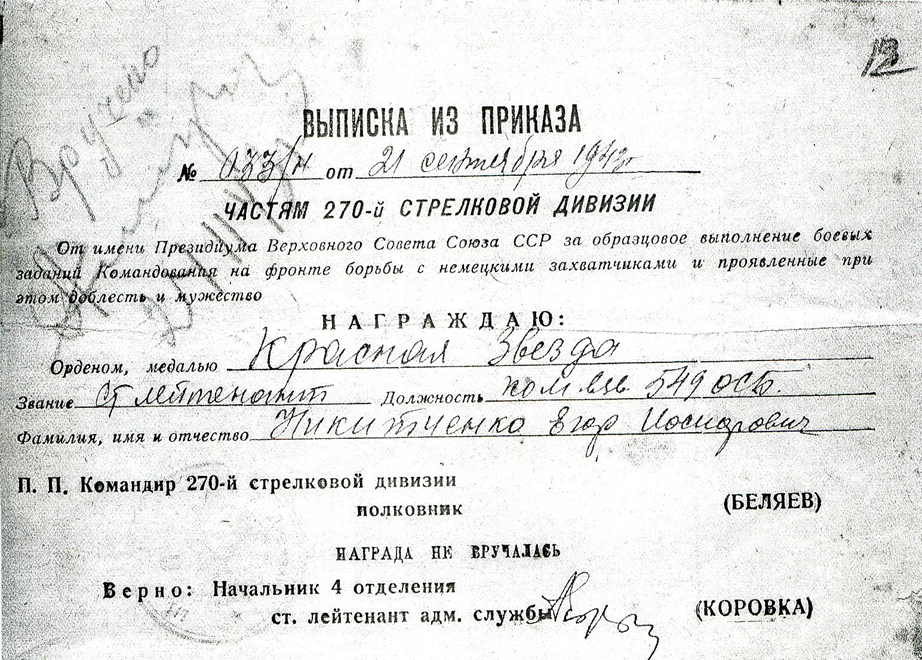 12
Вручено
ВЫПИСКА ИЗ ПРИКАЗА
№ 033/н от 21 сентября 1943г
ЧАСТЯМ 270-й СТРЕЛКОВОЙ ДИВИЗИИ
От имени Президиума Верховного Совета Союза ССР за образцовое выполнение боевых
заданий Командования на фронте борьбы с немецкими захватчиками и проявленные при
этом доблесть и мужество
НАГРАЖДАЮ:
Орденом, медалью Красная Звезда
Звание ст лейтенант Должность ком взв 549 осб.
Фамилия, имя и отчество Никитченко Егор Иосифович
П. П. Командир 270-й стрелковой дивизии
полковник (БЕЛЯЕВ)
НАГРАДА НЕ ВРУЧАЛАСЬ
Верно: Начальник 4 отделения
ст. лейтенант адм. службы (КОРОВКА)